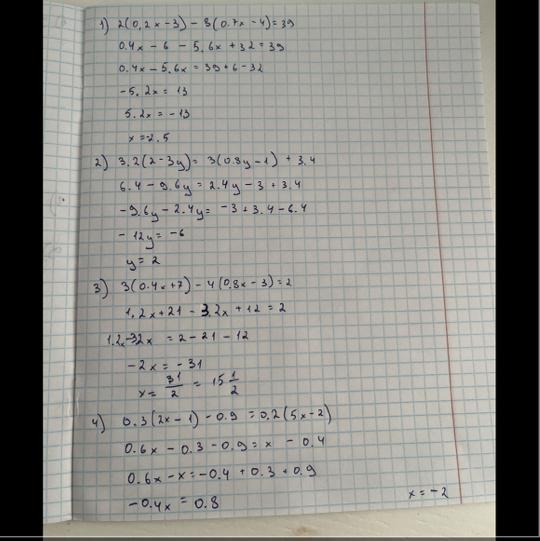 1) 2(0,2x-3) - 8(0.7x-4)=39
0.4x - 6 - 5,6x + 32 = 39
0.4x - 5,6x = 39 + 6 - 32
-5,2x = 13
5.2x = -13
x = -2.5
2) 3.2(2-3y) = 3(0.8y-1) + 3.4
6.4 - 9.6y = 2.4y - 3 + 3.4
-9.6y - 2.4y = -3 + 3.4 - 6.4
-12y = -6
y = 2
3) 3(0.4x+7) - 4(0,8x-3) = 2
1,2x + 21 - 3,2x + 12 = 2
1.2x-3,2x = 2 - 21 - 12
-2x = -31
x = 31/2 = 15 1/2
4) 0.3(2x-1) - 0.9 = 0.2(5x-2)
0.6x - 0.3 - 0.9 = x - 0.4
0.6x - x = -0.4 + 0.3 + 0.9
-0.4x = 0.8
x = -2